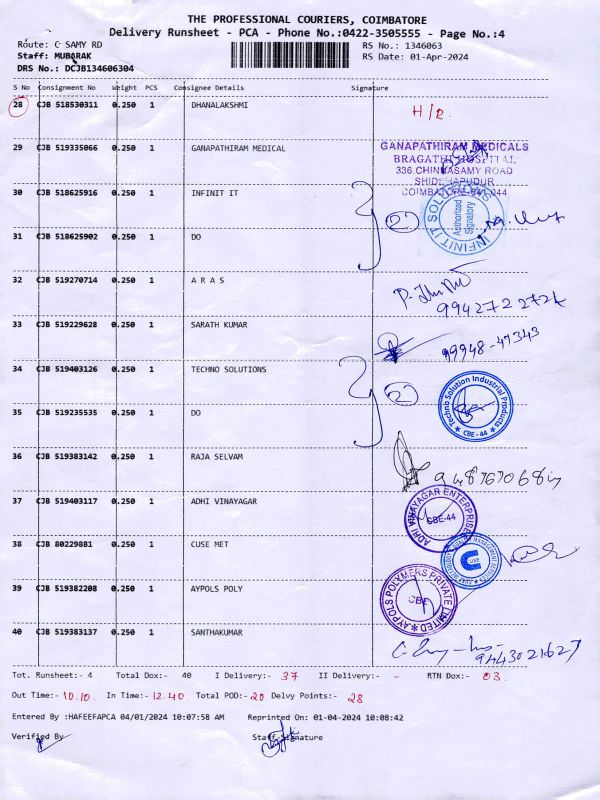 THE PROFESSIONAL COURIERS, COIMBATORE
Delivery Runsheet - PCA - Phone No.:0422-3505555 - Page No.:4
Route: C SAMY RD RS No.: 1346063
Staff: MUBARAK RS Date: 01-Apr-2024
DRS No.: DCJB134606304
S No Consignment No Weight PCS Consignee Details Signature
28 CJB 518530311 0.250 1 DHANALAKSHMI
29 CJB 519335066 0.250 1 GANAPATHIRAM MEDICAL
GANAPATHIRAM MEDICALS
BRAGATHI HOSPITAL
336.CHINNASAMY ROAD
COIMBATORE-641 044
30 CJB 518625916 0.250 1 INFINIT IT 2
INFINIT IT SOLUTIONS
Authorized
Signatory
31 CJB 518625902 0.250 1 DO
32 CJB 519270714 0.250 1 A R A S
33 CJB 519229628 0.250 1 SARATH KUMAR 99948-47343
34 CJB 519403126 0.250 1 TECHNO SOLUTIONS 2
Techno Solution Industrial Products
CBE - 44
35 CJB 519235535 0.250 1 DO
36 CJB 519383142 0.250 1 RAJA SELVAM
37 CJB 519403117 0.250 1 ADHI VINAYAGAR
ADHI VINAYAGAR ENTERPRISES
CBE-44
38 CJB 80229881 0.250 1 CUSE MET
39 CJB 519382208 0.250 1 AYPOLS POLY
AYPOLS POLYMERS PRIVATE LIMITED
CBE
40 CJB 519383137 0.250 1 SANTHAKUMAR 9443021627
Tot. Runsheet:- 4 Total Dox:- 40 I Delivery:- 37 II Delivery:- - RTN Dox:- 03.
Out Time:- 10.10. In Time:- 12.40. Total POD:- 20 Delvy Points:- 28
Entered By :HAFEEFAPCA 04/01/2024 10:07:58 AM Reprinted On: 01-04-2024 10:08:42
Verified By Staff Signature